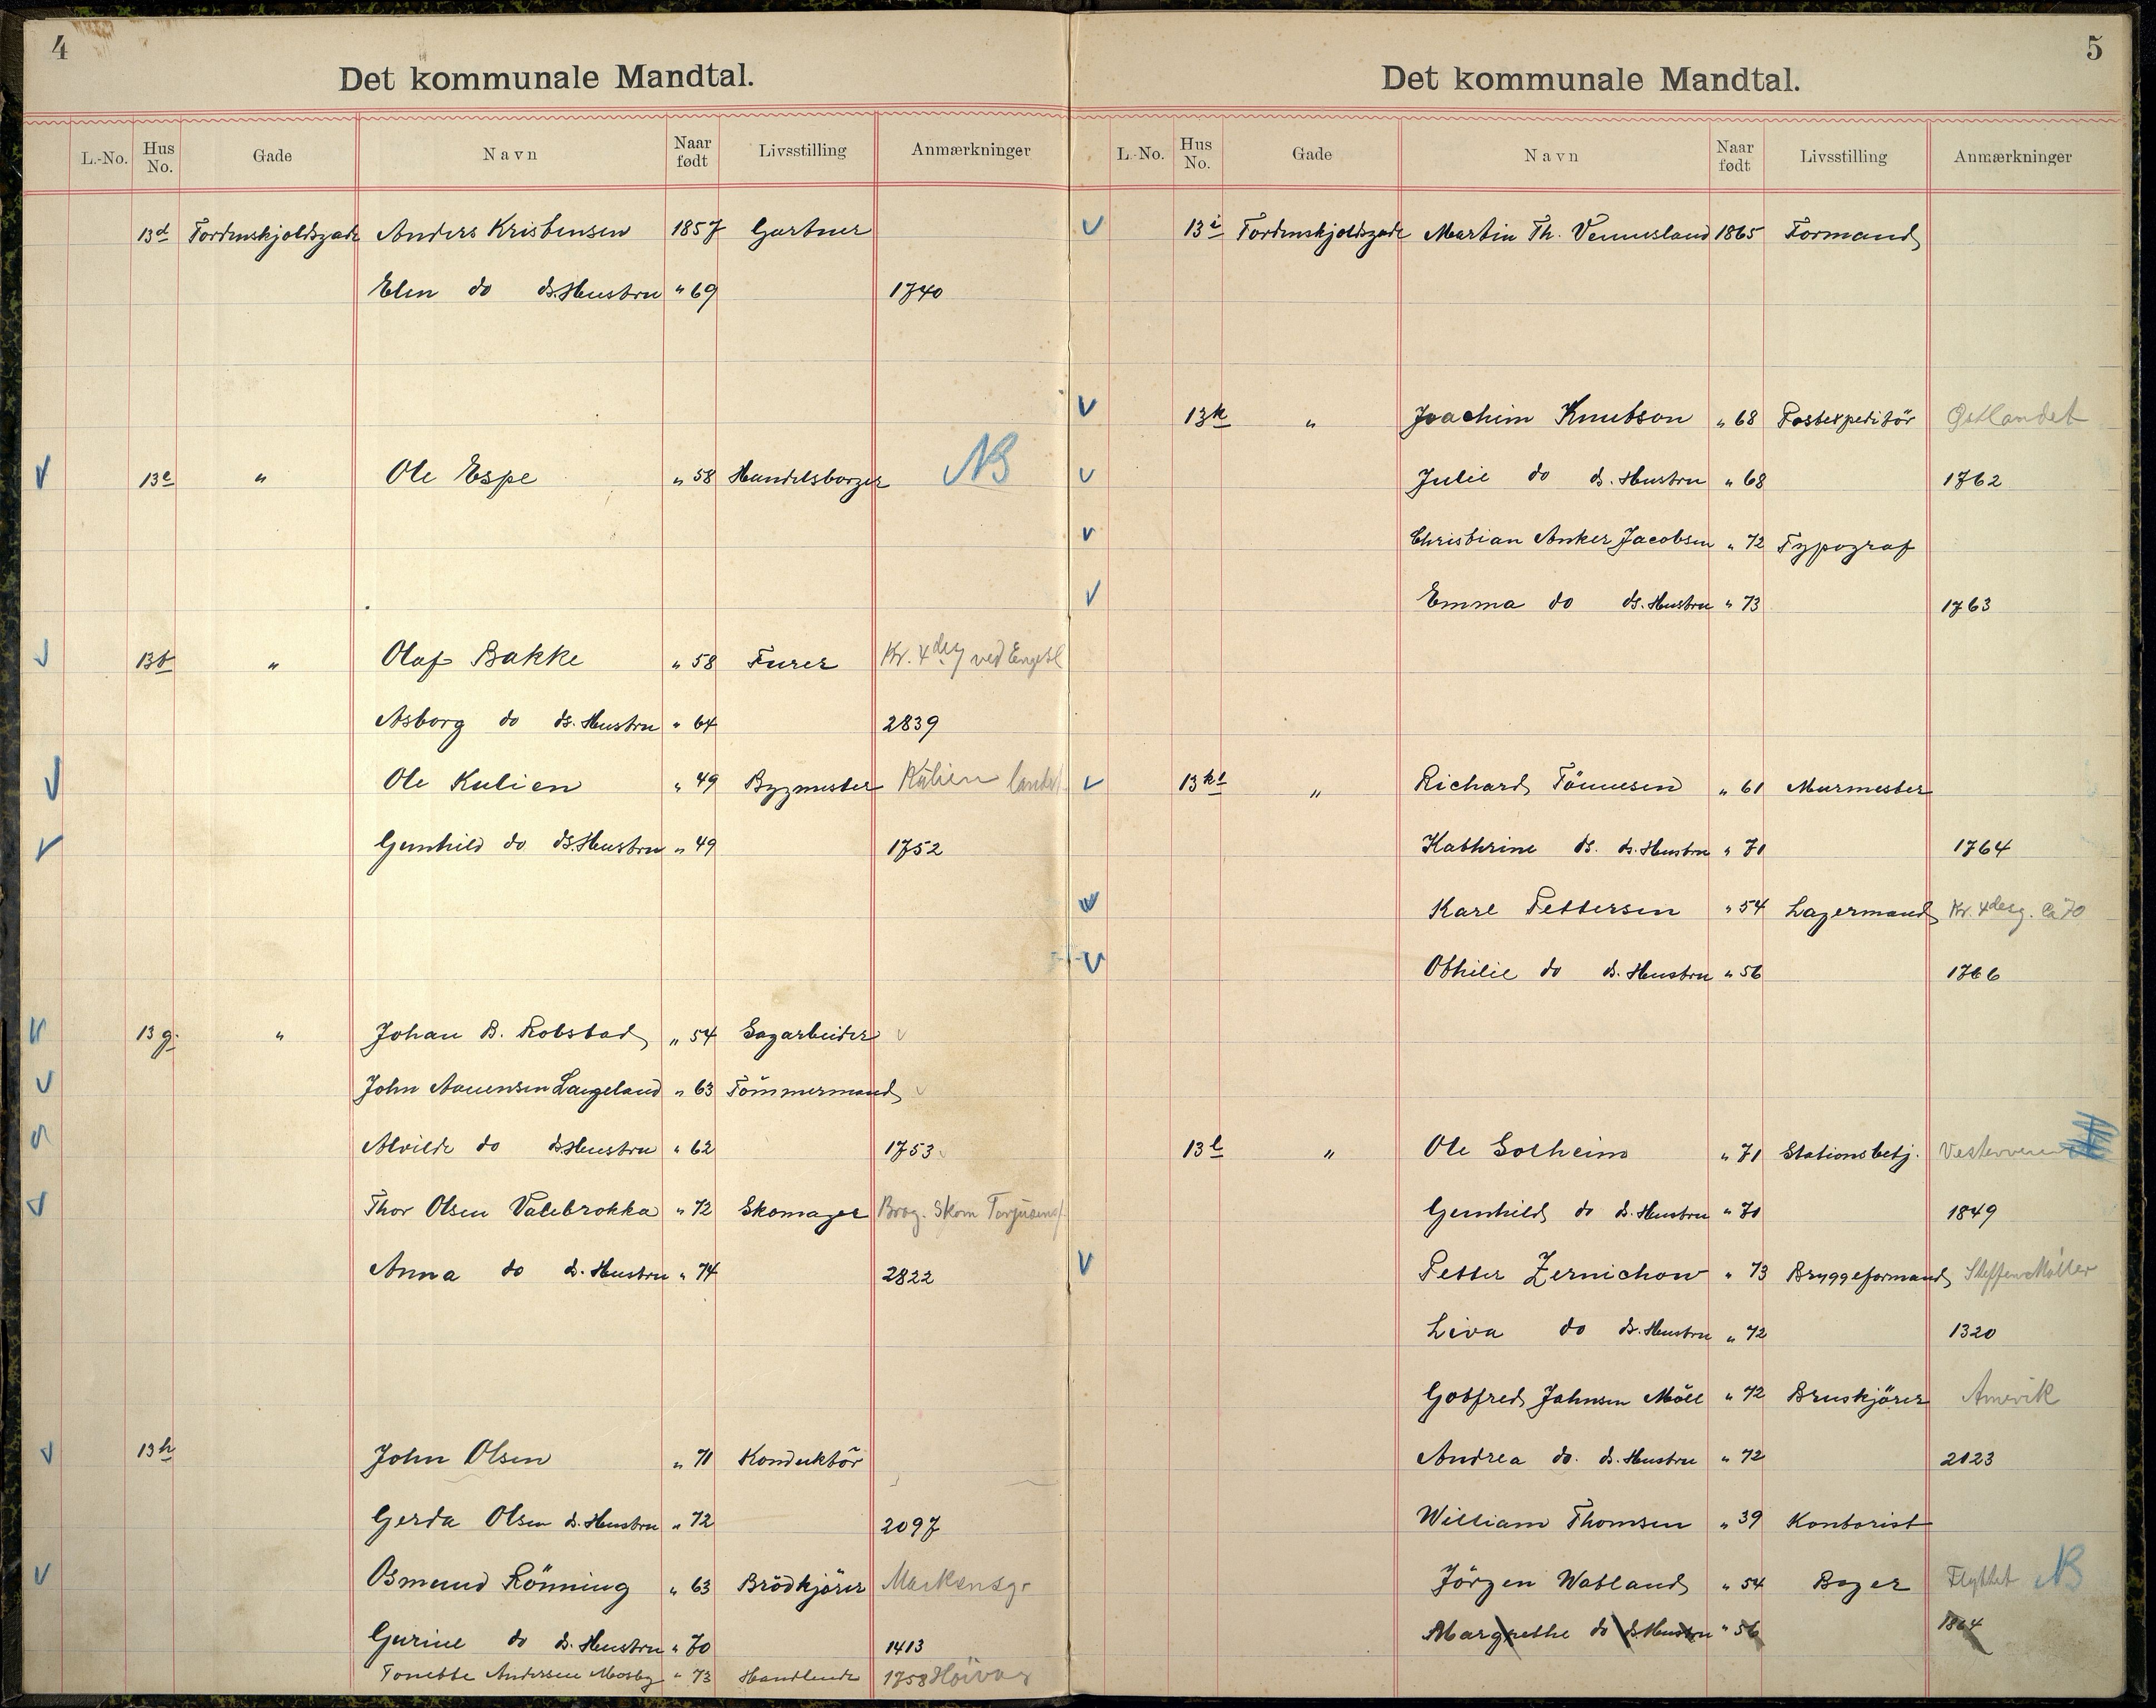 4
Det kommunale Mandtal.
L.-No. Hus No. Gade Navn Naar født Livsstilling Anmærkninger
13d Tordenskjoldsgade Anders Kristensen 1857 Gartner
Elen do ds. Hustru " 69 1740
13e " Ole Espe " 58 Handelsborger NB
13f " Olaf Bakke " 58 Furer Kr. 4des ved Engesl
Asborg do ds. Hustru " 64 2839
Ole Kulien " 49 Bygmester Kulien
Gunhild do ds. Hustru " 49 1752
13g. " Johan B. Robstad " 54 Sagarbeider
John Aanensen Langeland " 63 Tömmermand
Alvilde do ds Hustru " 62 1753
Thor Olsen Valebrokka " 72 Skomager Brog. Skom Torjusens
Anna do ds. Hustru " 74 2822
13h John Olsen " 71 Konduktör
Gerda Olsen ds. Hustru " 72 2097
Osmund Rönning " 63 Brödkjörer Markensg.
Gurine do ds. Hustru " 70 1413
Tonette Andersen Mosby " 73 Handlende 1758
5
Det kommunale Mandtal.
L.-No. Hus No. Gade Navn Naar født Livsstilling Anmærkninger
13i Tordenskjoldsgade Martin Th. Vennesland 1865 Formand
13k " Joachim Knutson " 68 Postexpeditör Østlandet
Julie do ds. Hustru " 68 1762
Christian Anker Jacobsen " 72 Typograf
Emma do ds. Hustru " 73 1763
13k1 " Richard Tönnesen " 61 Murmester
Kathrine ds. ds. Hustru " 71 1764
Karl Pettersen " 54 Lagermand Kr. 4desg. 70
Othilie do ds. Hustru " 56 1766
13l " Ole Solheim " 71 Stationsbetj.
Gunhild do ds. Hustru " 70 1849
Petter Zernichow " 73 Bryggeformand Steffen Møller
Liva do ds. Hustru " 72 1320
Gotfred Jahnsen Möll " 72 Bruskjörer Amerik
Andrea do. ds. Hustru " 72 2123
William Thomsen " 39 Kontorist
Jörgen Watland " 54 Bager Flyttet NB
Margrethe do ds Hustru " 56 1864